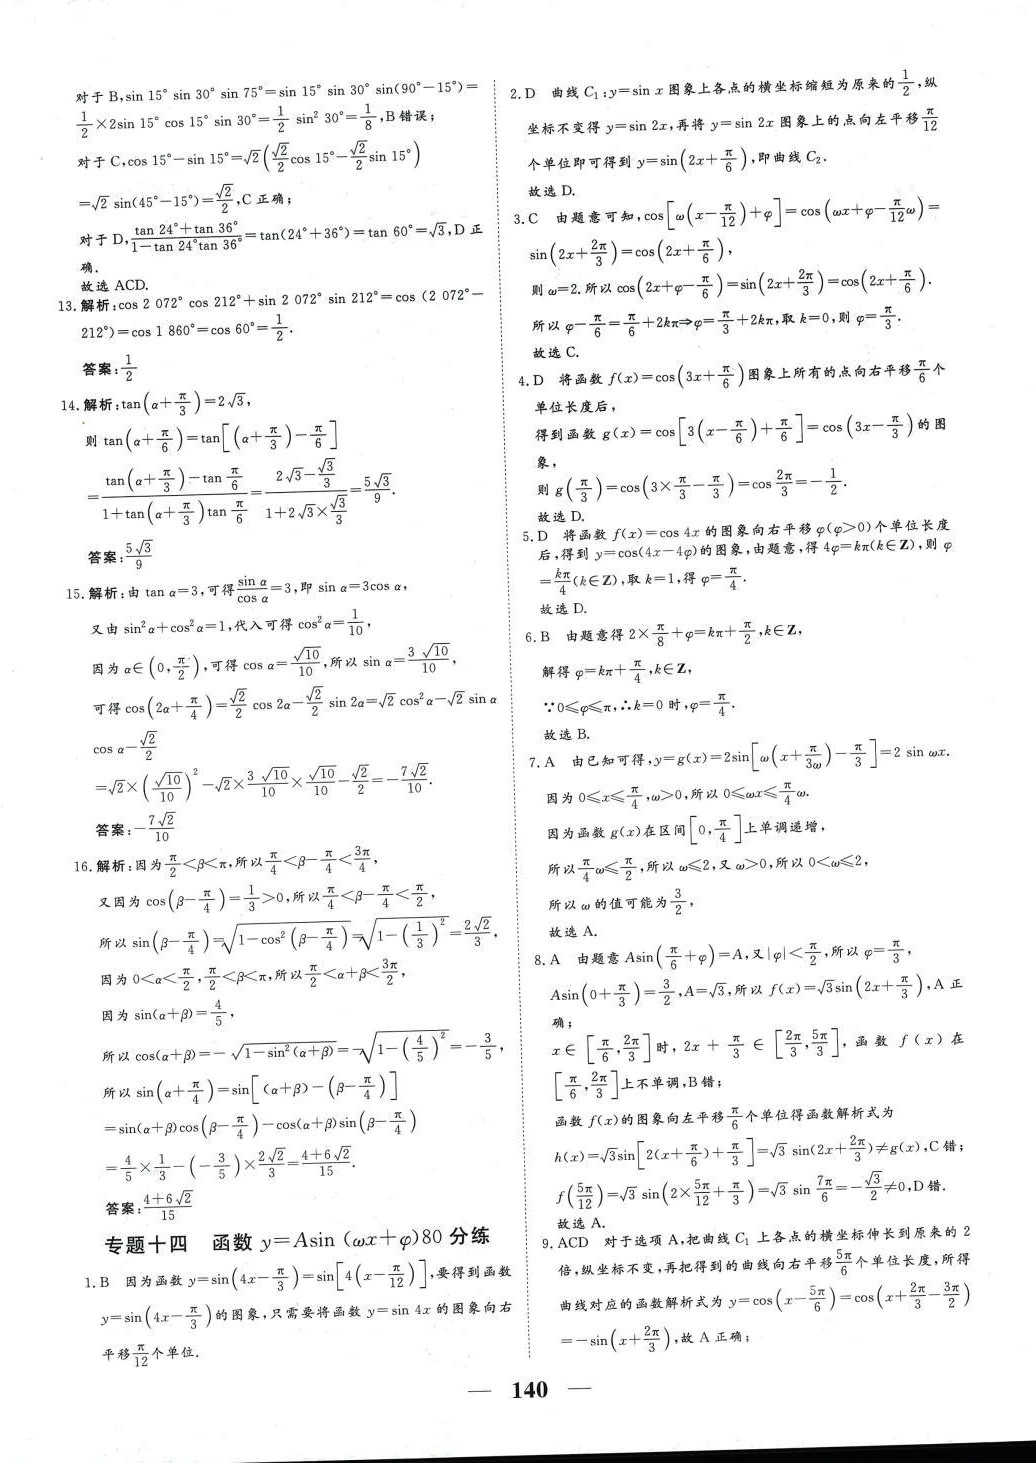 对于 B,sin 15° sin 30° sin 75°=sin 15° sin 30° sin(90°−15°)=
1/2×2sin 15° cos 15° sin 30°=1/2 sin² 30°=1/8,B 错误;
对于 C,cos 15°−sin 15°=√2(√2/2 cos 15°−√2/2 sin 15°)
=√2 sin(45°−15°)=√2/2,C 正确;
对于 D,(tan 24°+tan 36°)/(1−tan 24°tan 36°)=tan(24°+36°)=tan 60°=√3,D 正
确.
故选 ACD.
13.解析:cos 2 072° cos 212°+sin 2 072° sin 212°=cos (2 072°−
212°)=cos 1 860°=cos 60°=1/2.
答案:1/2
14.解析:tan(α+π/3)=2√3,
则 tan(α+π/6)=tan[(α+π/3)−π/6]
=(tan(α+π/3)−tan π/6)/(1+tan(α+π/3)tan π/6)=(2√3−√3/3)/(1+2√3×√3/3)=5√3/9.
答案:5√3/9
15.解析:由 tan α=3,可得sin α/cos α=3,即 sin α=3cos α,
又由 sin²α+cos²α=1,代入可得 cos²α=1/10,
因为 α∈(0,π/2),可得 cos α=√10/10,所以 sin α=3√10/10,
可得 cos(2α+π/4)=√2/2 cos 2α−√2/2 sin 2α=√2 cos²α−√2 sin α
cos α−√2/2
=√2×(√10/10)²−√2×3√10/10×√10/10−√2/2=−7√2/10.
答案:−7√2/10
16.解析:因为π/2<β<π,所以π/4<β−π/4<3π/4,
又因为 cos(β−π/4)=1/3>0,所以π/4<β−π/4<π/2,
所以 sin(β−π/4)=√(1−cos²(β−π/4))=√(1−(1/3)²)=2√2/3,
因为 0<α<π/2,π/2<β<π,所以π/2<α+β<3π/2,
因为 sin(α+β)=4/5,
所以 cos(α+β)=−√(1−sin²(α+β))=−√(1−(4/5)²)=−3/5,
所以 sin(α+π/4)=sin[(α+β)−(β−π/4)]
=sin(α+β)cos(β−π/4)−cos(α+β)sin(β−π/4)
=4/5×1/3−(−3/5)×2√2/3=(4+6√2)/15.
答案:(4+6√2)/15
专题十四 函数 y=Asin (ωx+φ)80 分练
1.B 因为函数 y=sin(4x−π/3)=sin[4(x−π/12)],要得到函数
y=sin(4x−π/3)的图象,只需要将函数 y=sin 4x 的图象向右
平移π/12个单位.
2.D 曲线 C₁:y=sin x 图象上各点的横坐标缩短为原来的1/2,纵
坐标不变得 y=sin 2x,再将 y=sin 2x 图象上的点向左平移π/12
个单位即可得到 y=sin(2x+π/6),即曲线 C₂.
故选 D.
3.C 由题意可知,cos[ω(x−π/12)+φ]=cos(ωx+φ−π/12ω)=
sin(2x+2π/3)=cos(2x+π/6),
则 ω=2.所以 cos(2x+φ−π/6)=sin(2x+2π/3)=cos(2x+π/6).
所以 φ−π/6=π/6+2kπ⇒φ=π/3+2kπ,取 k=0,则 φ=π/3.
故选 C.
4.D 将函数 f(x)=cos(3x+π/6)图象上所有的点向右平移π/6个
单位长度后,
得到函数 g(x)=cos[3(x−π/6)+π/6]=cos(3x−π/3)的图
象,
则 g(π/3)=cos(3×π/3−π/3)=cos 2π/3=−1/2.
故选 D.
5.D 将函数 f(x)=cos 4x 的图象向右平移 φ(φ>0)个单位长度
后,得到 y=cos(4x−4φ)的图象,由题意,得 4φ=kπ(k∈Z),则 φ
=kπ/4(k∈Z),取 k=1,得 φ=π/4.
故选 D.
6.B 由题意得 2×π/8+φ=kπ+π/2,k∈Z,
解得 φ=kπ+π/4,k∈Z,
∵0≤φ≤π,∴k=0 时,φ=π/4.
故选 B.
7.A 由已知可得,y=g(x)=2sin[ω(x+π/3ω)−π/3]=2 sin ωx.
因为 0≤x≤π/4,ω>0,所以 0≤ωx≤π/4ω.
因为函数 g(x)在区间[0,π/4]上单调递增,
所以π/4ω≤π/2,所以 ω≤2,又 ω>0,所以 0<ω≤2,
所以 ω 的值可能为3/2,
故选 A.
8.A 由题意 Asin(π/6+φ)=A,又|φ|<π/2,所以 φ=π/3,
Asin(0+π/3)=3/2,A=√3,所以 f(x)=√3sin(2x+π/3),A 正
确;
x∈[π/6,2π/3]时,2x+π/3∈[2π/3,5π/3],函数 f(x)在
[π/6,2π/3]上不单调,B 错;
函数 f(x)的图象向左平移π/6个单位得函数解析式为
h(x)=√3sin[2(x+π/6)+π/3]=√3 sin(2x+2π/3)≠g(x),C 错;
f(5π/12)=√3 sin(2×5π/12+π/3)=√3 sin 7π/6=−√3/2≠0,D 错.
故选 A.
9.ACD 对于选项 A,把曲线 C₁ 上各点的横坐标伸长到原来的 2
倍,纵坐标不变,再把得到的曲线向右平移5π/6个单位长度,所得
曲线对应的函数解析式为 y=cos(x−5π/6)=cos(x+2π/3−3π/2)
=−sin(x+2π/3),故 A 正确;
— 140 —